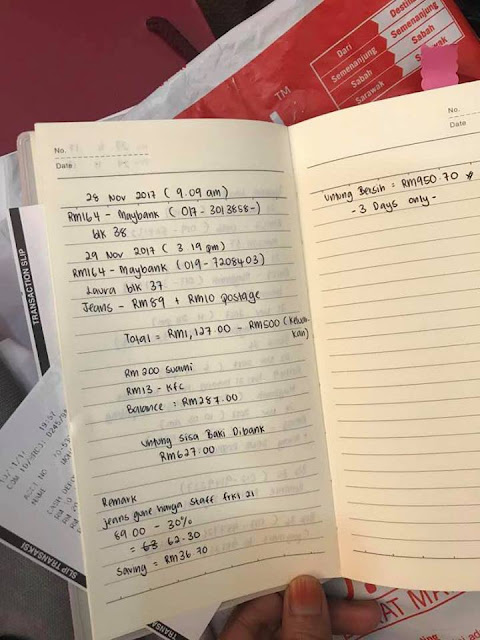 Dari
Semenanjung
Sabah
Sarawak
Destina
Semenanjung
Sabah
Sarawak
TM
No.
Date
28 Nov 2017 ( 9.09 am )
RM164 - Maybank ( 017 - 3013858- )
blk 38
29 Nov 2017 ( 3 19 pm )
RM164 - Maybank ( 019 - 7208403 )
Laura blk 37
Jeans - RM89 + RM10 postage
Total = RM1,127.00 - RM500 ( Keluarkan )
RM 200 suami
RM13 - Kfc
Balance = RM287.00
Untung Sisa Baki Dibank
RM627.00
Remark
Jeans
harga staff
21
89.00 - 30%
= 63 62.30
Saving = RM36.70
No.
Date
Untung Bersih = RM950.70
- 3 Days only -
TRANSACTION SLIP
SLIP TRANSAKSI